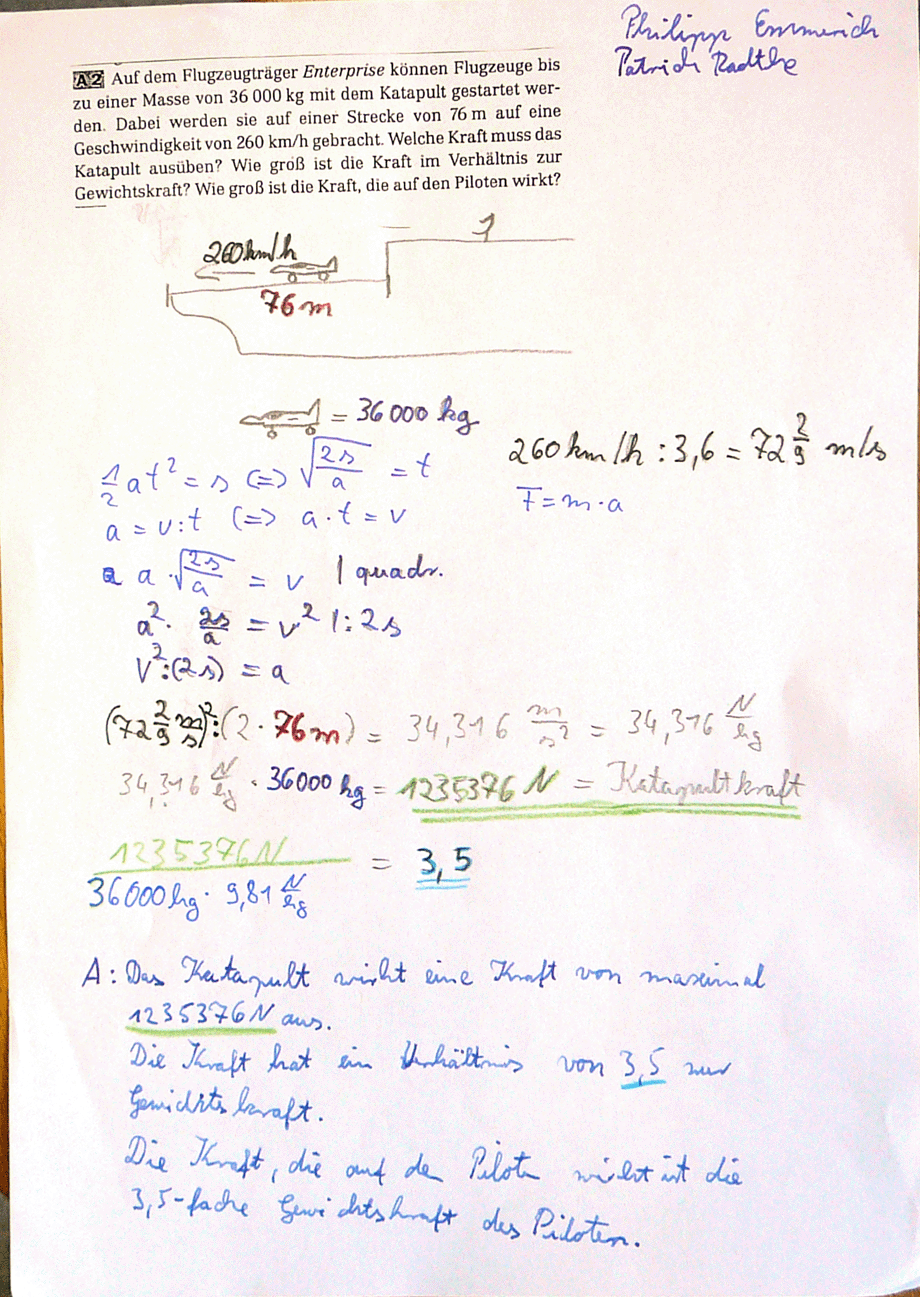 Philipp Emmerich
Patrick Radthe
A2 Auf dem Flugzeugträger Enterprise können Flugzeuge bis
zu einer Masse von 36 000 kg mit dem Katapult gestartet wer-
den. Dabei werden sie auf einer Strecke von 76 m auf eine
Geschwindigkeit von 260 km/h gebracht. Welche Kraft muss das
Katapult ausüben? Wie groß ist die Kraft im Verhältnis zur
Gewichtskraft? Wie groß ist die Kraft, die auf den Piloten wirkt?
260 km/h
76 m
= 36 000 kg
260 km/h : 3,6 = 72 2/9 m/s
1/2 at² = s <=> √(2s/a) = t
F = m · a
a = v : t <=> a · t = v
a · √(2s/a) = v | quadr.
a² · 2s/a = v² | : 2s
v² : (2s) = a
(72 2/9 m/s)² : (2 · 76 m) = 34,316 m/s² = 34,316 N/kg
34,316 N/kg · 36000 kg = 1235376 N = Katapultkraft
1235376 N / 36000 kg · 9,81 N/kg = 3,5
A: Das Katapult wirkt eine Kraft von maximal
1235376 N aus.
Die Kraft hat ein Verhältnis von 3,5 zur
Gewichtskraft.
Die Kraft, die auf den Piloten wirkt ist die
3,5-fache Gewichtskraft des Piloten.